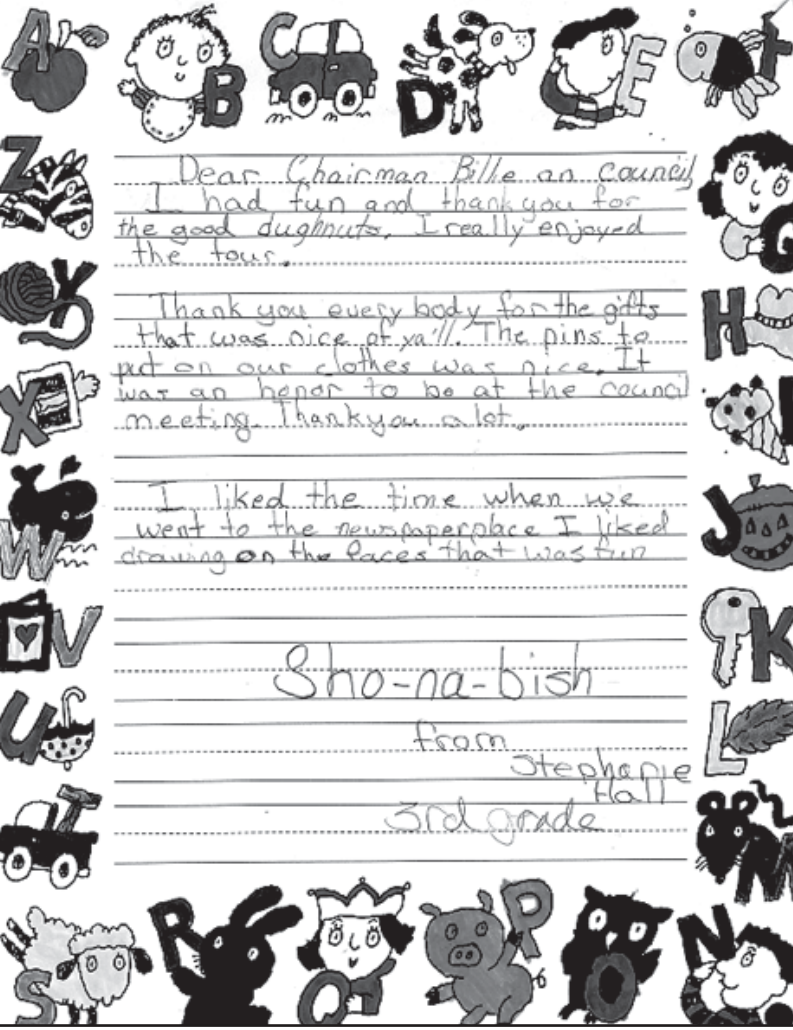 A
B
C
D
E
F
Z
G
Y
H
X
I
W
J
V
K
U
L
T
M
S
R
Q
P
O
N
Dear Chairman Bille an council
I had fun and thank you for
the good dughnuts. I really enjoyed
the tour.
Thank you every body for the gifts
that was nice of ya'll. The pins to
put on our clothes was nice. It
was an honor to be at the council
meeting. Thankyou a lot.
I liked the time when we
went to the newspaperplace I liked
drawing on the faces that was fun
Sho-na-bish
from
Stephanie
Hall
3rd grade